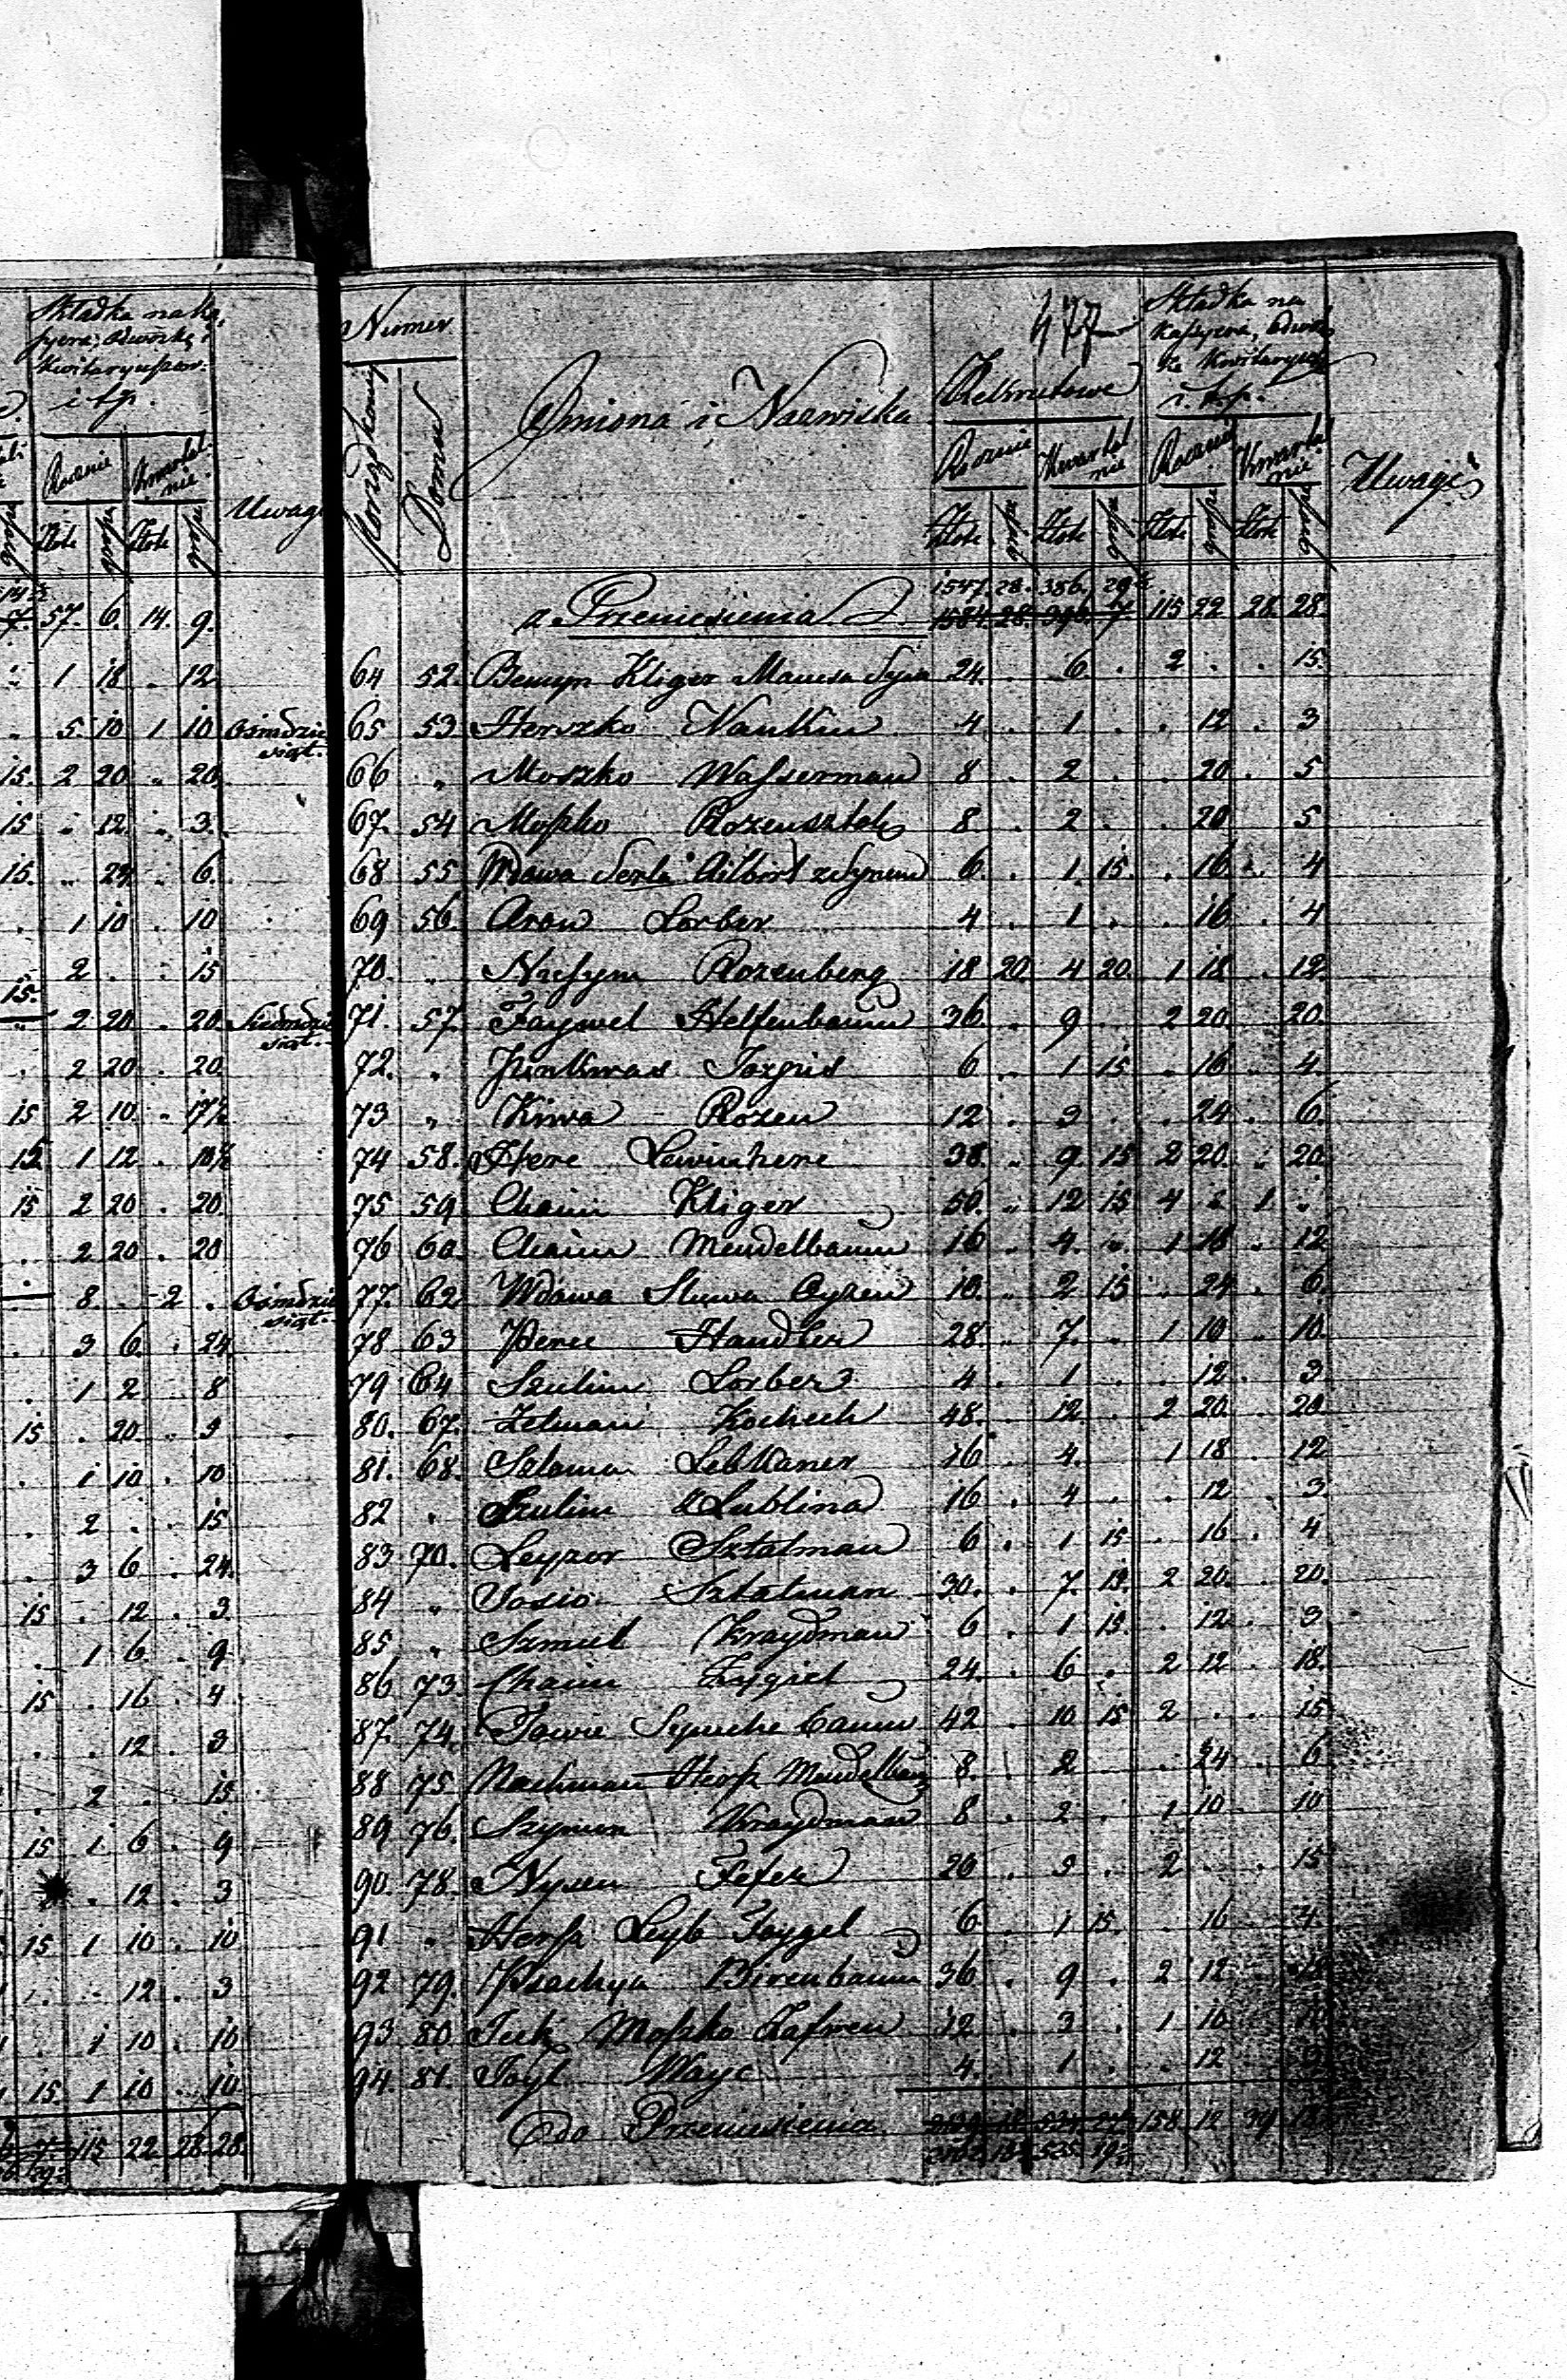 Składka na ka,
syera, odwózkę i
Kwitaryuszow.
i t.p.
Rocznie Kwartal.
nie.
Złote grosze Złote grosze
Uwagi
57. 6. 14. 9.
1 18 . 12
5 10 1 10 Ośmdzie
siąt.
15. 2 20 " 20
15 " 12 " 3.
15. " 24 " 6.
. 1 10 . 10
15. 2 . . 15
2 20 . 20 Siedmdzie
siąt.
. 2 20 . 20
15 2 10 " 17½
15 1 12 . 10½
15 2 20 . 20.
. 2 20 . 20
8. . 2 . Ośmdzie
siąt.
. 3 6. . 24
. 1 2 . 8
15 . 20 " 5
. 1 10 . 10
. 2 . . 15
. 3 6 . 24.
15 . 12 . 3
. 1 6 . 9
15 . 16 . 4
. . 12 . 3
. 2 . . 15
15 1 6 . 9
. 12 . 3
15 1 10 . 10
. . 12 . 3
. 1 10 . 10
15. 1 10 . 10
115 22 28 28
477
Numer
Porządkowy
Domu
Imiona i Nazwiska
Rekrutowe
Rocznie Kwartal
nie
Złote grosze Złote grosze
Składka na
Kassyera, odwóz
kę Kwitaryusz
i t.p.
Rocznie Kwartal
nie
Złote grosze Złote grosze
Uwagi
1547. 28. 386. 29½
z Przeniesienia 1584. 28. 396. 7. 115 22 28. 28.
64 52. Beniyn Kliger Manesa Syn 24. . 6. . 2 . . 15.
65 53 Herszko Nankin 4. . 1 . . 12 . 3
66 " Moszko Wasserman 8 . 2 . . 20 . 5
67. 54 Moszko Rozensztok 8. . 2 . . 20 . 5
68 55 Wdowa Serla Ailbort z Synem 6. . 1. 15. . 16 . 4
69 56. Aron Lorber 4 . 1 . . 16 . 4
70. " Nusym Rozenberg 18 20 4 20. 1 18 . 12
71. 57. Faywel Helfenbaum 36. . 9 . 2 20 . 20.
72. " Junkmas Torgus 6 . 1 15 . 16 . 4.
73 " Kiwa Rozen 12 . 3 . . 24 . 6.
74 58. Here Lewinhene 38. " 9. 15 2 20. " 20.
75 59 Chaim Kliger 50. " 12 15 4 " 1 "
76 60. Chaim Mendelbaum 16 " 4. " 1 18 " 12
77. 62 Wdowa Sluwa Ayzen 10. " 2 15 . 24 . 6.
78 63 Perec Handler 28. " 7. " 1 10 " 10.
79 64 Szulim Lorber 4 . 1 . . 12 . 3
80. 67. Zelman Kochech 48. . 12 . 2 20. . 20
81. 68. Salomon Lebkaner 16 . 4. . 1 18 . 12
82 " Szulim Lublina 16 . 4 . . 12 . 3
83 70. Leyzor Sztalman 6 . 1 15 . 16 . 4
84 " Josio Sztalman 30. . 7. 15. 2 20. . 20.
85 " Szmul Kraydman 6 . 1 15. . 12 . 3
86 73 Chaim Zygiel 24. . 6 . 2 12 . 18.
87. 74. 42 . 10 15 2 . . 15
88 75 Nachman Hersz Mendelbaum 8. . 2 . . 24 . 6
89 76. Szymon Kraydman 8 . 2 . 1 10 . 10
90. 78. Nysen Fefer 20 . 5 . 2 . . 15
91 " Hersz Leyb Foygel 6 . 1 15. . 16 . 4.
92 79. Psachya Birenbaum 36 . 9 . 2 12 . 18
93 80 Icek Moszko Zafren 12 . 3 . 1 10 . 10
94. 81. Wayc 4. . 1 . . 12 . 3
do Przeniesienia 158. 12 39 18